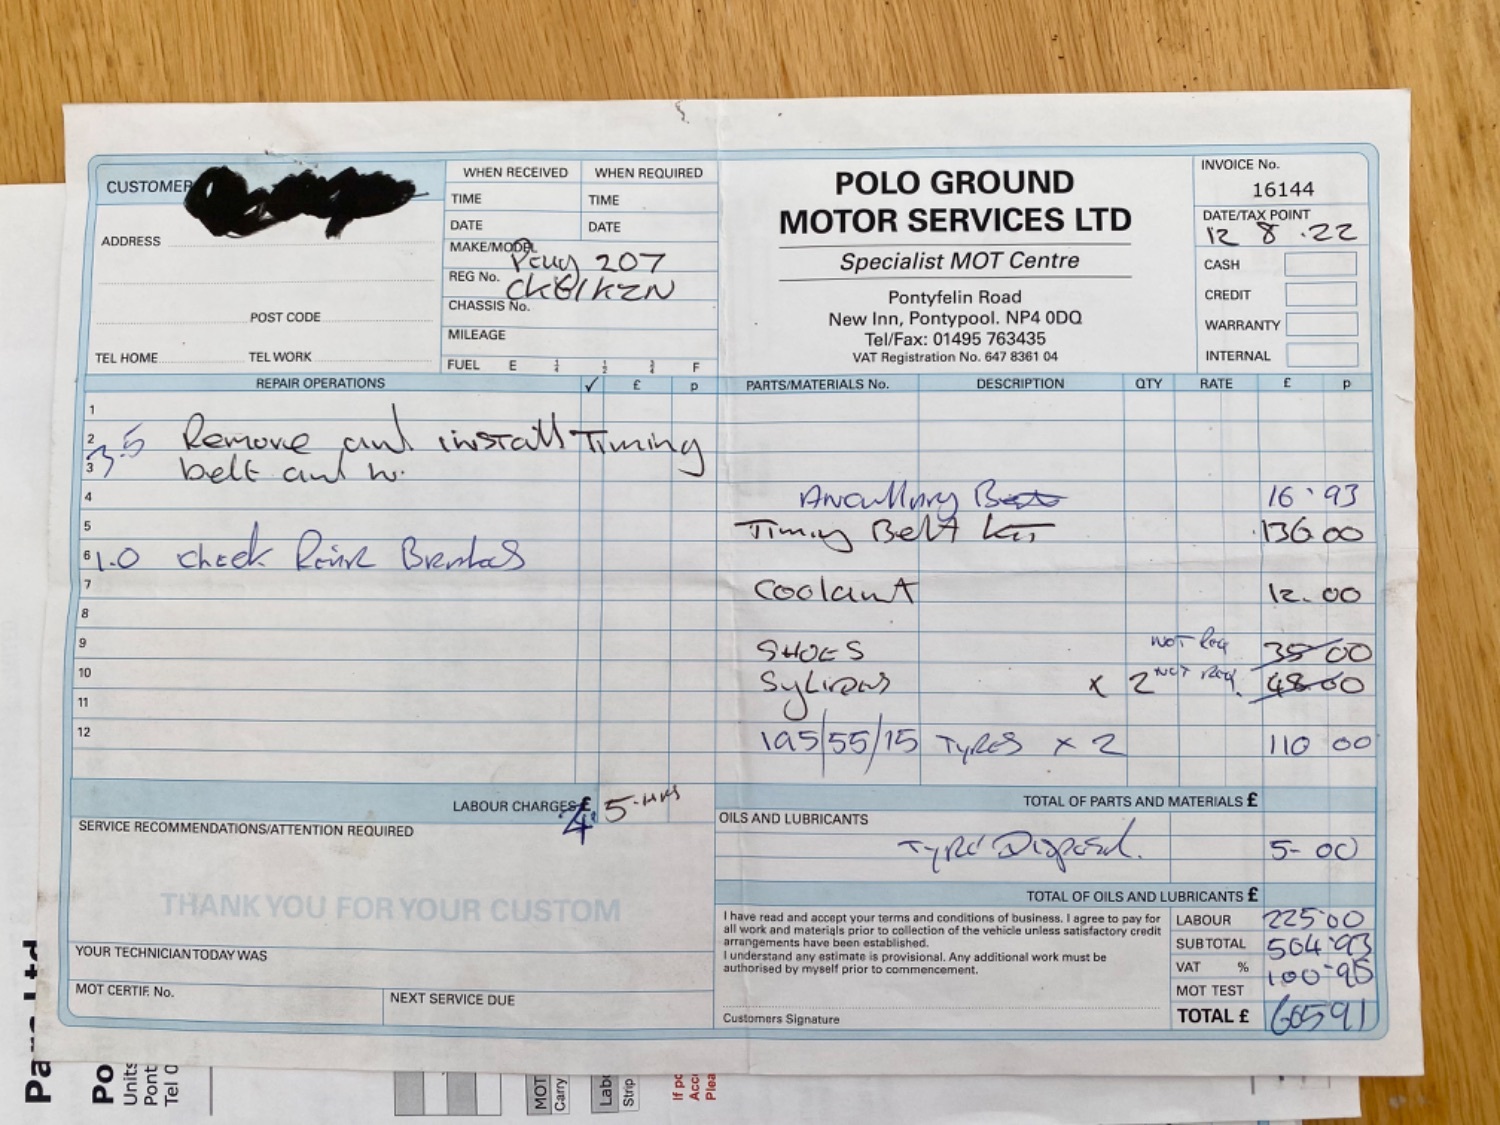 CUSTOMER
ADDRESS
POST CODE
TEL HOME TEL WORK
WHEN RECEIVED WHEN REQUIRED
TIME TIME
DATE DATE
MAKE/MODEL 207
REG No.
CHASSIS No.
MILEAGE
FUEL E 1/4 1/2 3/4 F
POLO GROUND
MOTOR SERVICES LTD
Specialist MOT Centre
Pontyfelin Road
New Inn, Pontypool. NP4 0DQ
Tel/Fax: 01495 763435
VAT Registration No. 647 8361 04
INVOICE No.
16144
DATE/TAX POINT
12 8 .22
CASH
CREDIT
WARRANTY
INTERNAL
REPAIR OPERATIONS ✓ £ p
1
2 3.5 Remove and install Timing
3 belt and w.
4
5
6 1.0 check Rear Brakes
7
8
9
10
11
12
LABOUR CHARGES £ 4.5 HRS
SERVICE RECOMMENDATIONS/ATTENTION REQUIRED
THANK YOU FOR YOUR CUSTOM
YOUR TECHNICIAN TODAY WAS
MOT CERTIF. No.
NEXT SERVICE DUE
PARTS/MATERIALS No. DESCRIPTION QTY RATE £ p
16.93
Timing Belt Kit 136.00
Coolant 12.00
SHOES NOT Req 35 00
x 2 NOT Req. 48.00
195/55/15 TYRES x 2 110 00
TOTAL OF PARTS AND MATERIALS £
OILS AND LUBRICANTS
Tyre Disposal. 5-00
TOTAL OF OILS AND LUBRICANTS £
I have read and accept your terms and conditions of business. I agree to pay for
all work and materials prior to collection of the vehicle unless satisfactory credit
arrangements have been established.
I understand any estimate is provisional. Any additional work must be
authorised by myself prior to commencement.
Customers Signature
LABOUR 225.00
SUBTOTAL 504.93
VAT % 100.98
MOT TEST
TOTAL £ 60591
Po
Units
Pont
Tel 0
MOT
Carry
Labo
Strip
If po
Acc
Plea